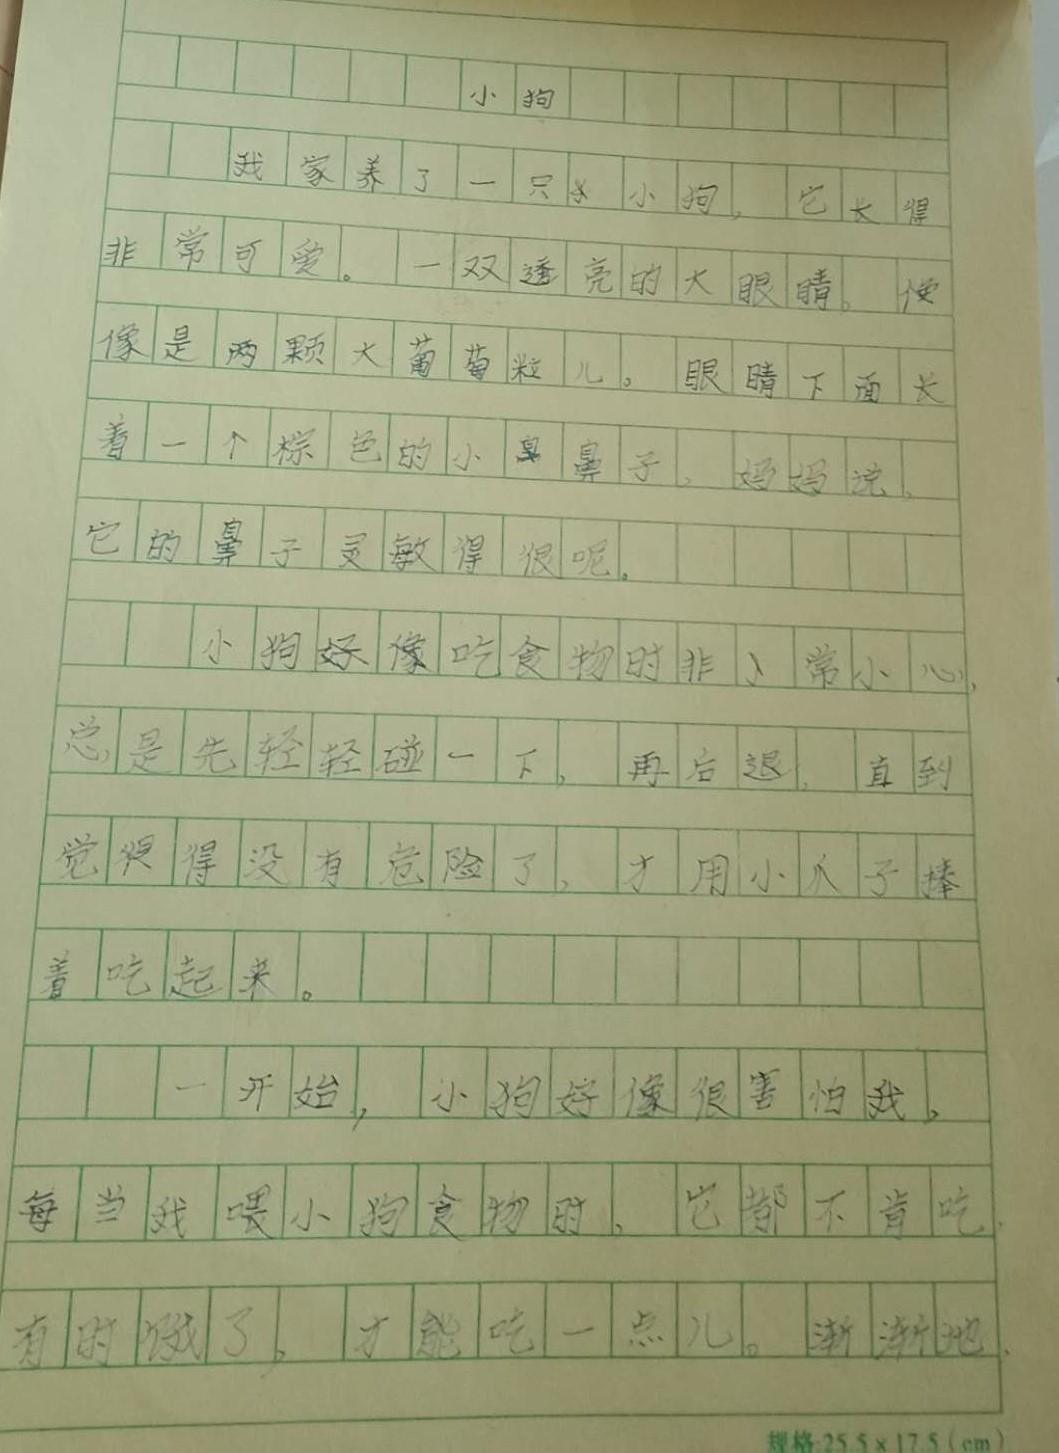 小狗
我家养了一只小狗，它长得
非常可爱。一双透亮的大眼睛。便
像是两颗大葡萄粒儿。眼睛下面长
着一个棕色的小鼻子，妈妈说，
它的鼻子灵敏得很呢。
小狗好像吃食物时非常小心，
总是先轻轻碰一下，再后退，直到
觉得得没有危险了，才用小爪子捧
着吃起来。
一开始，小狗好像很害怕我，
每当我喂小狗食物时，它都不肯吃，
有时饿了，才能吃一点儿。渐渐地，
规格:25.5×17.5(cm)